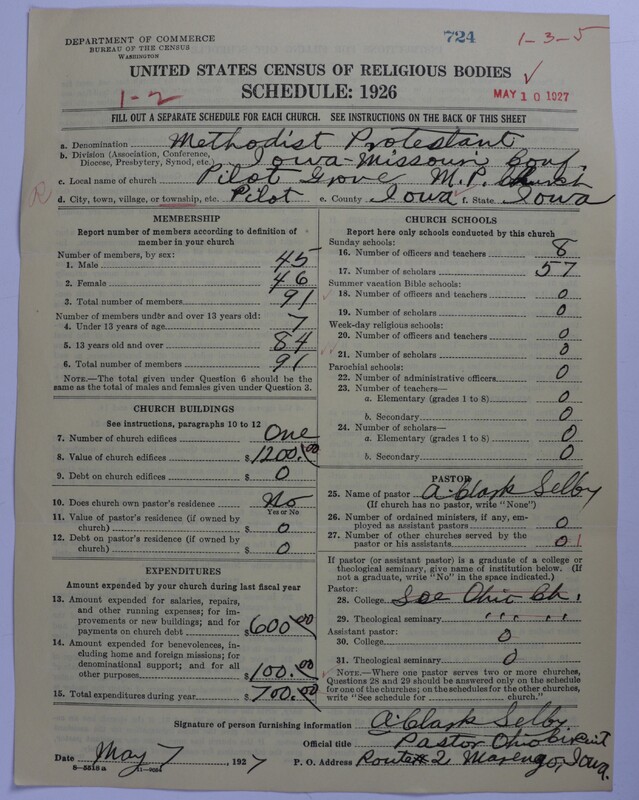 DEPARTMENT OF COMMERCE
BUREAU OF THE CENSUS
WASHINGTON
724
1-3-5
UNITED STATES CENSUS OF RELIGIOUS BODIES
SCHEDULE: 1926
1-2
MAY 10 1927
FILL OUT A SEPARATE SCHEDULE FOR EACH CHURCH. SEE INSTRUCTIONS ON THE BACK OF THIS SHEET
a. Denomination Methodist Protestant
b. Division (Association, Conference, Diocese, Presbytery, Synod, etc.) Iowa-Missouri Conf
c. Local name of church Pilot Grove M.P. Church
R d. City, town, village, or township, etc. Pilot e. County Iowa f. State Iowa
MEMBERSHIP
Report number of members according to definition of
member in your church
Number of members, by sex:
1. Male 45
2. Female 46
3. Total number of members 91
Number of members under and over 13 years old:
4. Under 13 years of age 7
5. 13 years old and over 84
6. Total number of members 91
NOTE.—The total given under Question 6 should be the
same as the total of males and females given under Question 3.
CHURCH BUILDINGS
See instructions, paragraphs 10 to 12
7. Number of church edifices One
8. Value of church edifices $1200.00
9. Debt on church edifices $ 0
10. Does church own pastor's residence No
Yes or No
11. Value of pastor's residence (if owned by
church) $ 0
12. Debt on pastor's residence (if owned by
church) $ 0
EXPENDITURES
Amount expended by your church during last fiscal year
13. Amount expended for salaries, repairs,
and other running expenses; for im-
provements or new buildings; and for
payments on church debt $600.00
14. Amount expended for benevolences,
including home and foreign missions; for
denominational support; and for all
other purposes $100.00
15. Total expenditures during year $700.00
CHURCH SCHOOLS
Report here only schools conducted by this church
Sunday schools:
16. Number of officers and teachers 8
17. Number of scholars 57
Summer vacation Bible schools:
18. Number of officers and teachers 0
19. Number of scholars 0
Week-day religious schools:
20. Number of officers and teachers 0
21. Number of scholars 0
Parochial schools:
22. Number of administrative officers 0
23. Number of teachers—
a. Elementary (grades 1 to 8) 0
b. Secondary 0
24. Number of scholars—
a. Elementary (grades 1 to 8) 0
b. Secondary 0
PASTOR
25. Name of pastor A. Clark Selby
(If church has no pastor, write "None")
26. Number of ordained ministers, if any, em-
ployed as assistant pastors 0
27. Number of other churches served by the
pastor or his assistants 0 1
If pastor (or assistant pastor) is a graduate of a college or
theological seminary, give name of institution below. (If
not a graduate, write "No" in the space indicated.)
Pastor:
28. College See Ohio Ch.
29. Theological seminary " " "
Assistant pastor:
30. College 0
31. Theological seminary 0
NOTE.—Where one pastor serves two or more churches,
Questions 28 and 29 should be answered only on the schedule
for one of the churches; on the schedules for the other churches,
write "See schedule for ........ church."
Signature of person furnishing information A. Clark Selby
Official title Pastor Ohio Circuit
Date May 7, 1927 P. O. Address Route #2 Marengo, Iowa.
8—5518 a